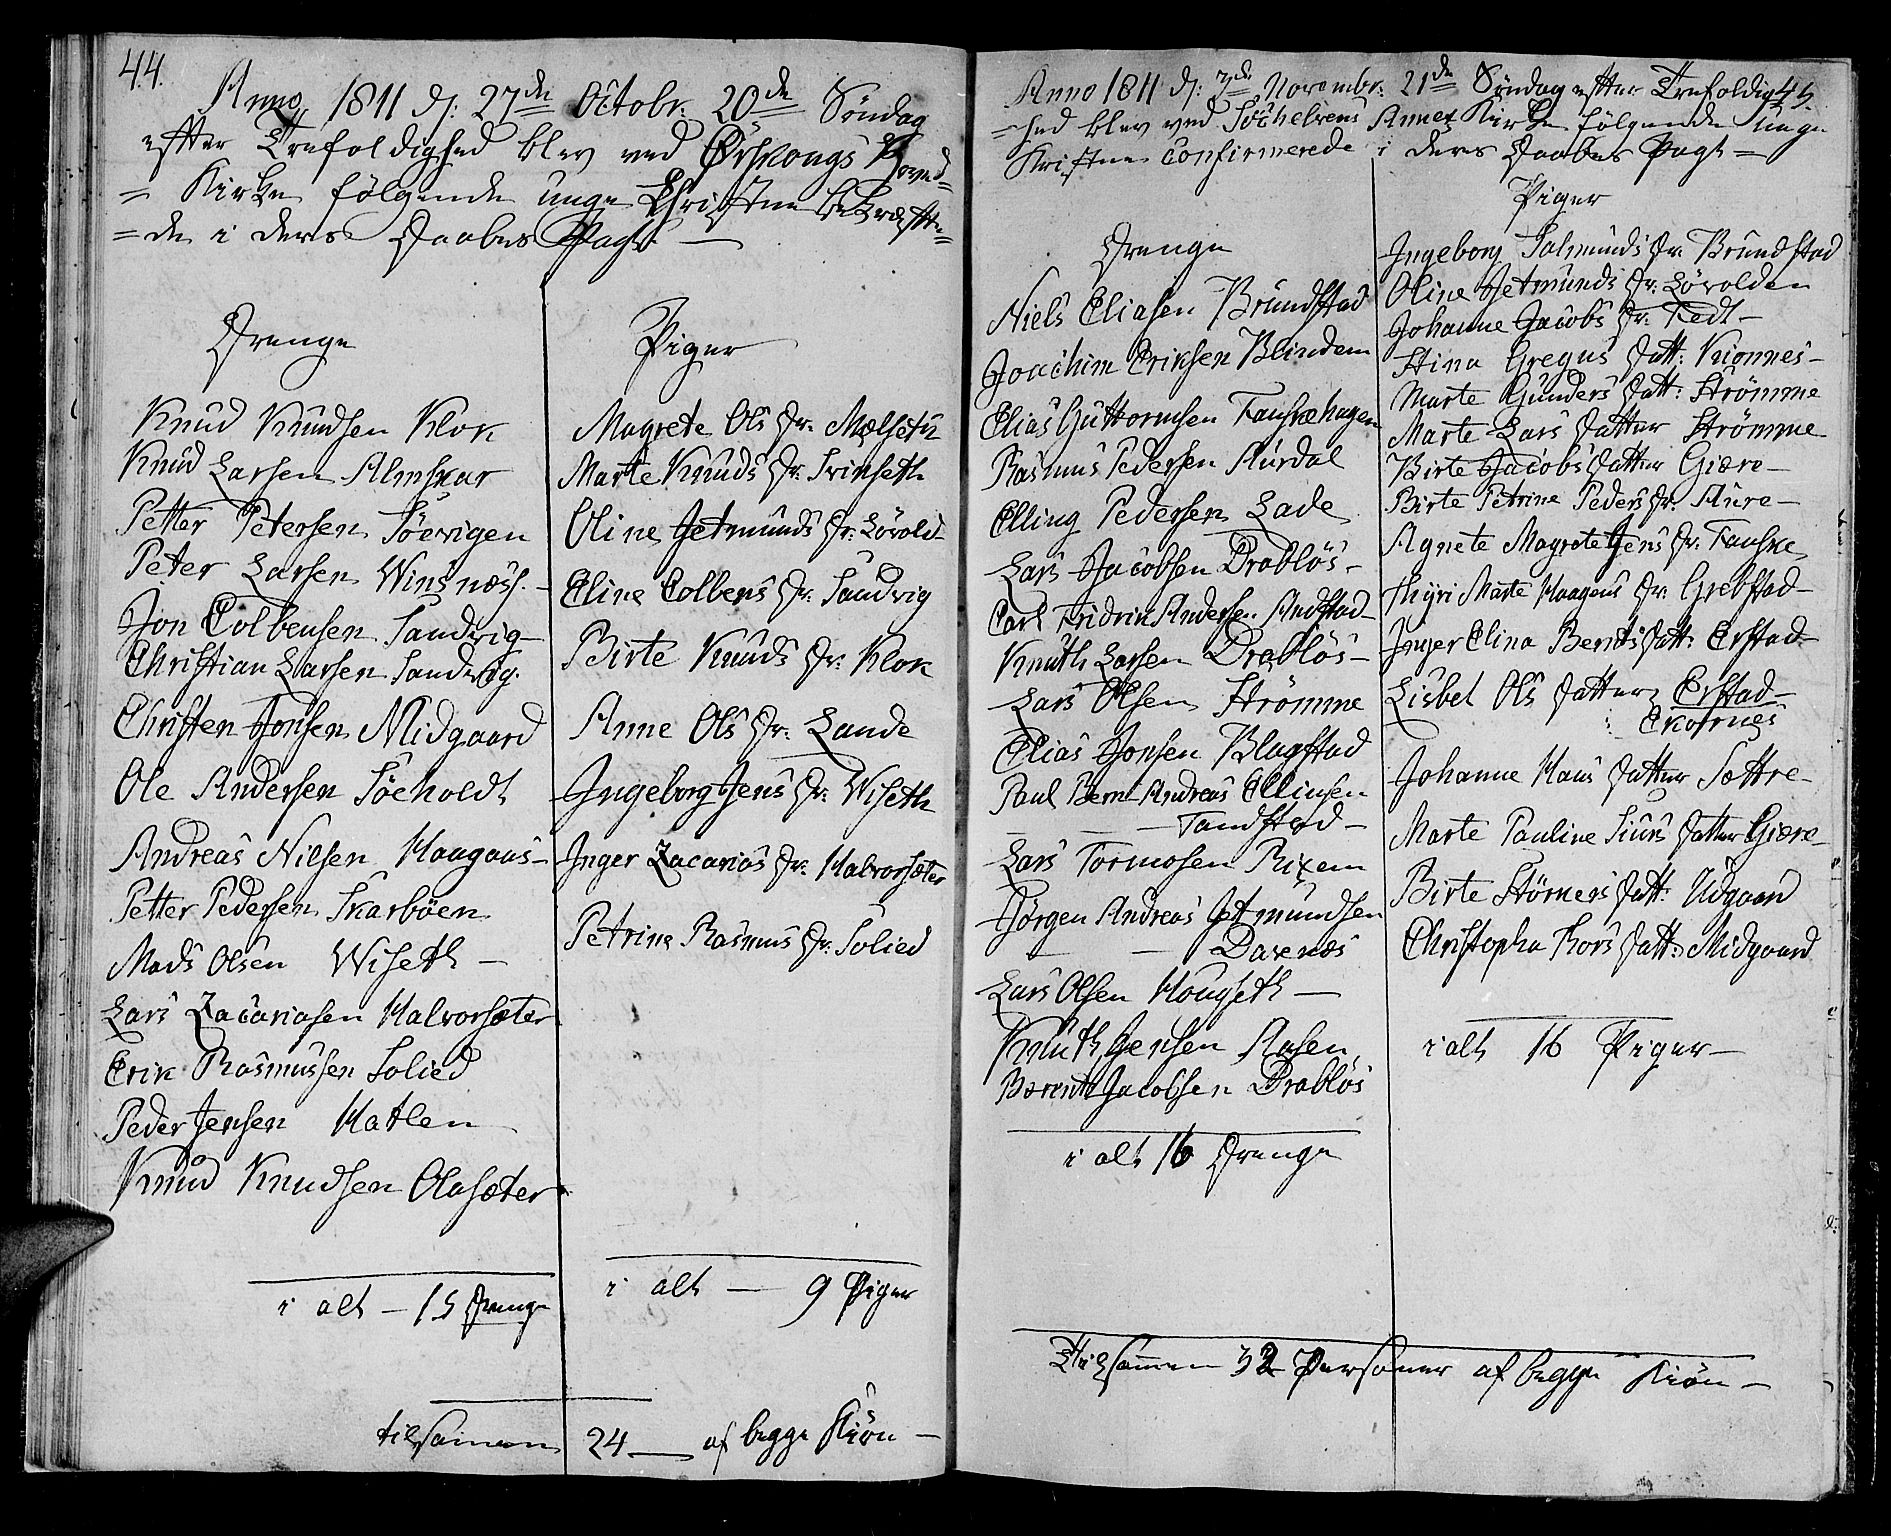 44.
Anno 1811 d: 27de Octobr. 20de Söndag
efter Trefoldighed blev ved Ørskougs Hoved=
= Kirke følgende unge Christne bekræfte=
=de i deres Daabes Pagt —
Drenge
Knud Knudsen Klok
Knud Larsen Almskar
Petter Petersen Söevigen
Peter Larsen Winsnæss. -
Jon Colbensen Sandvig -
Christian Larsen Sandvig.
Christen Jonsen Midgaard
Ole Andersen Söeholdt
Andreas Nilsen Haagaas -
Petter Pedersen Skarböen
Mads Olsen Wiseth —
Lars Zacariasen Halvorsæter
Erik Rasmussen Solied
Peder Jensen Hatlen
Knud Knudsen Olasæter
i alt — 15 Drenge
Piger
Magrete Ols Dr. Mælsetü
Marte Knuds Dr. Svinseth
Oline Jetmunds Dr: Lövold -
Eline Colbens Dr. Sandvig
Birte Knuds Dr: Klok
Anne Ols Dr. Lande
Ingeborg Jens Dr. Wiseth
Inger Zacarias Dr. Halvorsæter
Petrine Rasmus Dr. Solied
i alt — 9 Piger
tilsamen 24 — af begge Kiön —
Anno 1811 d: 3de Novembr: 21de Söndag efter Trefoldig 45.
=hed blev ved Söchelvens Annex Kirke følgende unge
Kristne Confirmerede i deres Daabes Pagt —
Drenge
Niels Eliasen Brundstad
Joachim Eriksen Blindem
Elias Guttormsen Fauskehagen
Rasmus Pedersen Aurdal
Elling Pedersen Lade
Lars Jacobsen Drablös -
Carl Fridrik Andersen Andstad -
Knuth Larsen Drablös -
Lars Olsen Strömme
Elias Jonsen Blagstad
Paul Bernt Andreas Ellinsen
— — — Tandstad —
Lars Tormosen Rixem
Jörgen Andreas Jetmundsen
— — Davenæs
Lars Olsen Hougseth —
Knuth Jensen Aasen
Bærent Jacobsen Drablös
i alt 16 Drenge
Piger
Ingeborg Salmunds Dr. Brundstad
Oline Jetmunds Dr: Lövolden
Johanne Jacobs Dr. Tedt -
Stina Gregus Datt: Viomnes -
Marte Gunders Datt: Strömme
Marte Lars Datter Strömme
Birte Jacobs Datter Giære -
Birte Petrine Peders Dr. Aure -
Agnete Magrete Jens Dr. Fauske
Thyri Marte Haagens Dr: Grebstad -
Inger Elina Bernts Datt: Erstad -
Lisbet Ols Datter Erstad -
Ekornes
Johanne Hans Datter Sættre -
Marte Pauline Siurs Datter Giære -
Birte Störners Datt: Udgaard
Christopha Tors Datt: Midgaard
i alt 16 Piger —
Tilsammen 32 Personer af begge Kiön —